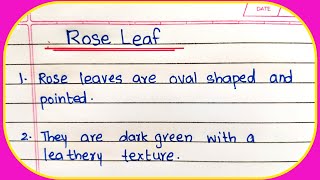 DATE
Rose Leaf
1. Rose leaves are oval shaped and
pointed.
2. They are dark green with a
leathery texture.